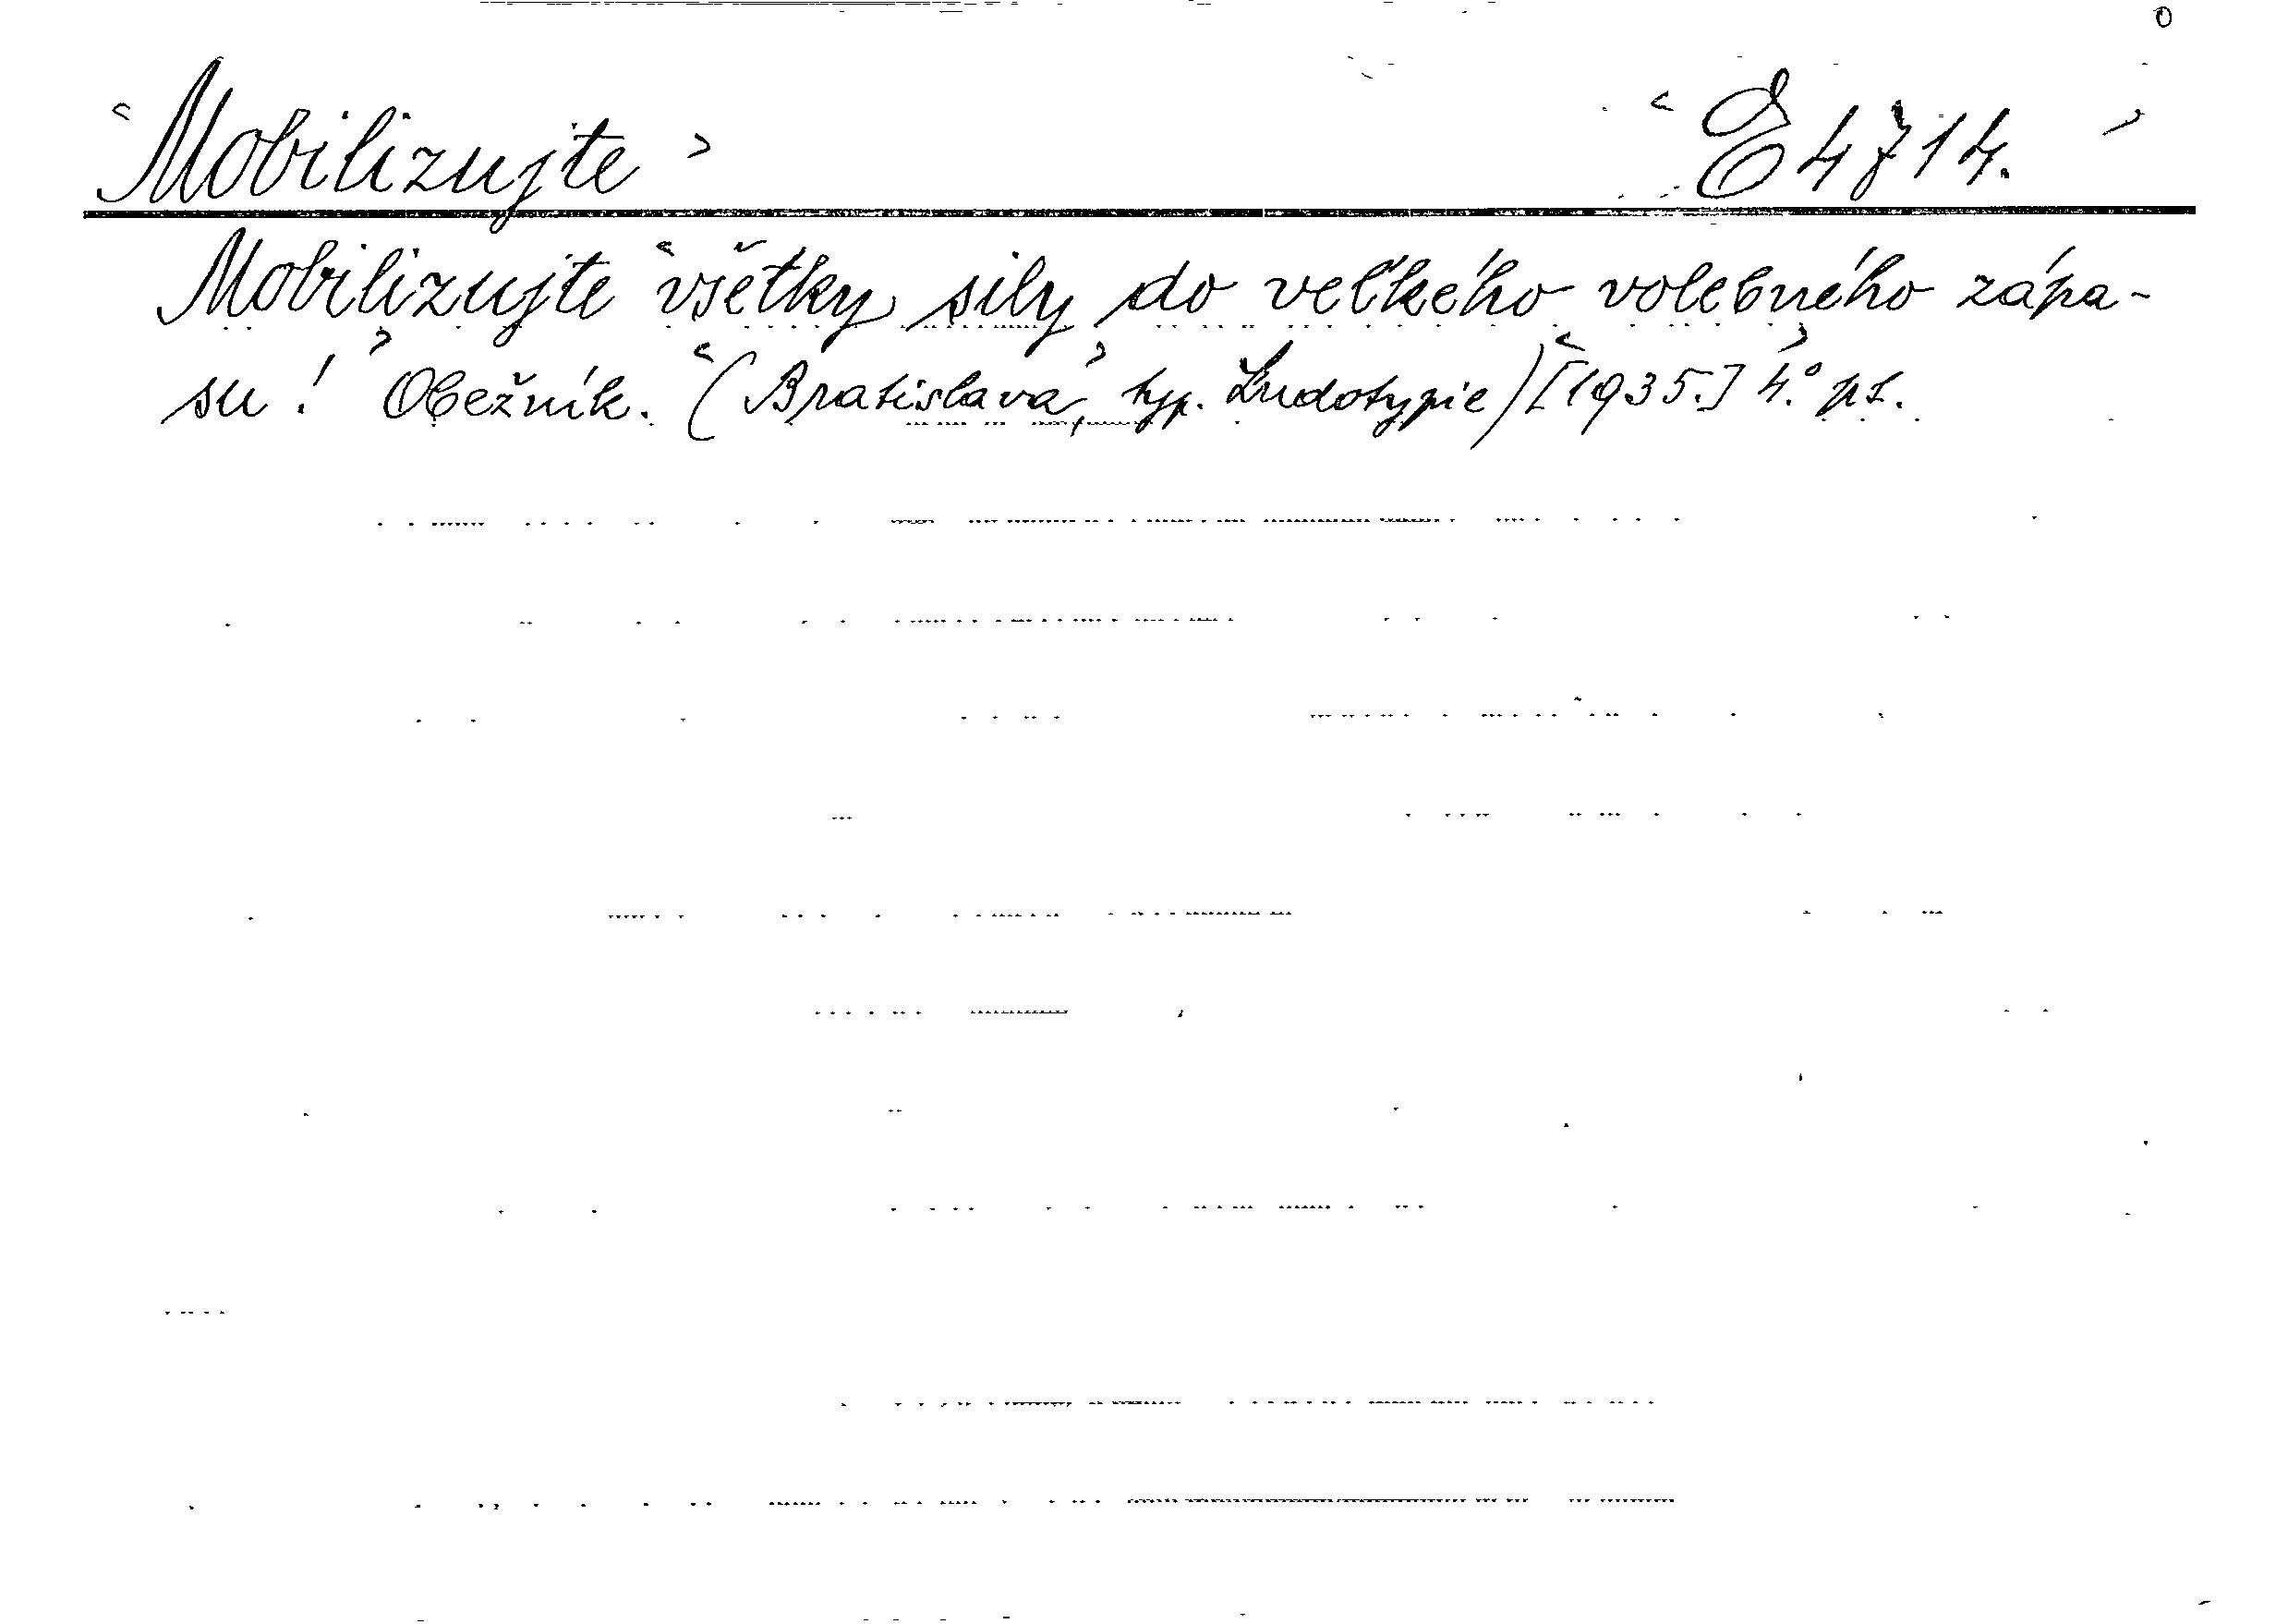 Mobilizujte E 4714.
Mobilizujte všetky sily do veľkého volebného zápa-
su! Obežník. (Bratislava, typ. Ľudotypie) [1935.] 4.°